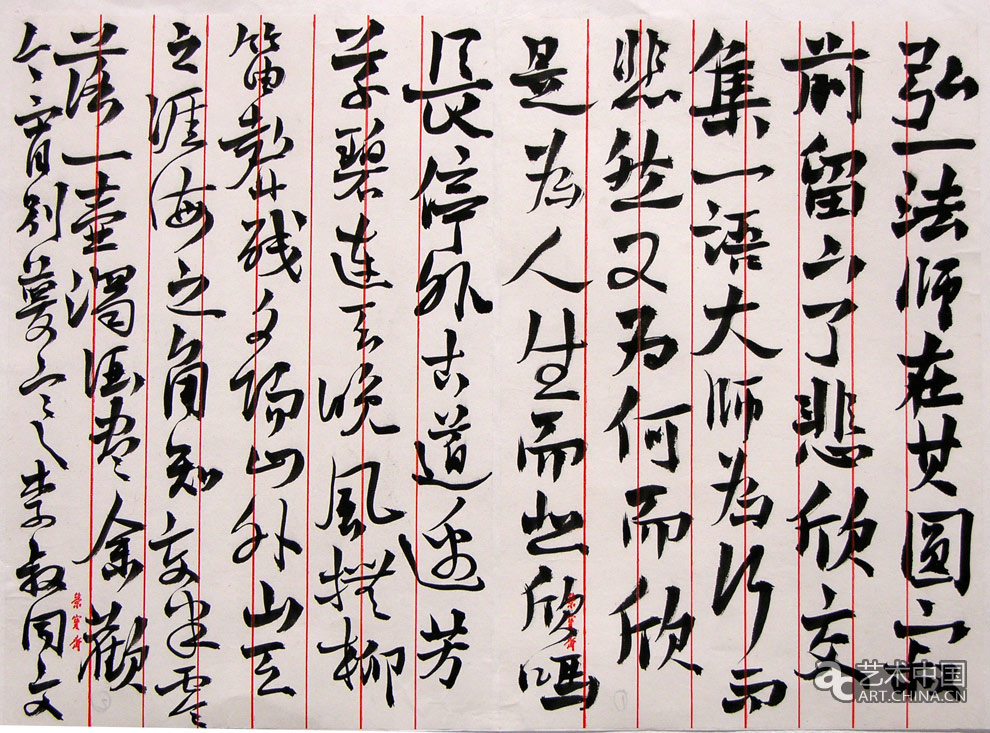 弘一法师在其圆寂
前留下了悲欣交
集一语大师为何而
悲然又为何而欣
是为人生而悲欣吗
長停外古道边芳
草碧连天晚風拂柳
笛声残夕阳山外山天
之涯海之角知交半零
落一壶濁酒尽余歡
今宵别夢寒李叔同文
榮寶齋
榮寶齋
艺术中国
ART.CHINA.CN